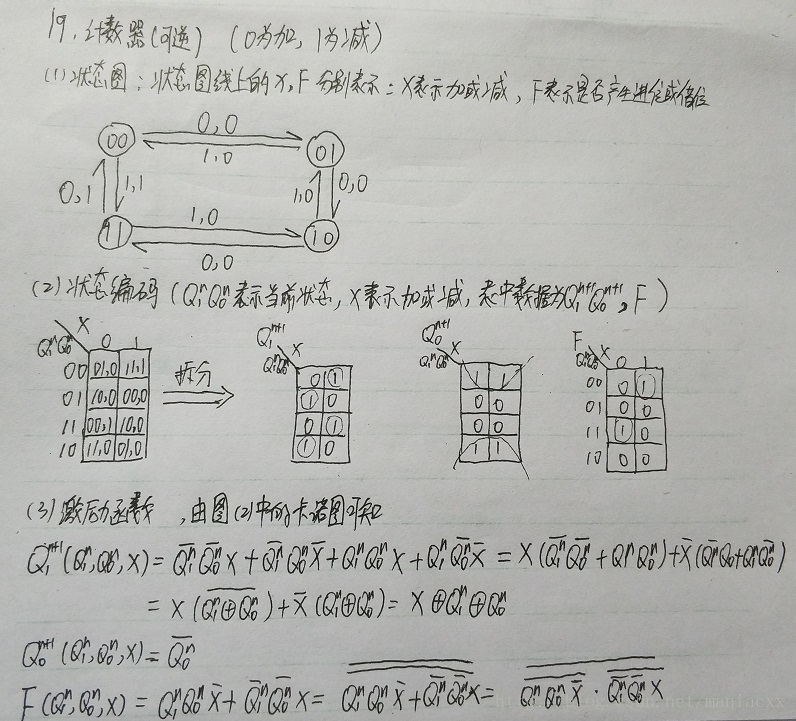 19. 计数器 (可逆) (0为加, 1为减)
(1) 状态图: 状态图线上的 X, F 分别表示: X表示加或减, F表示是否产生进位或借位
00 01 11 10
0,0
1,0
0,0
1,0
0,0
1,0
0,1
1,1
(2) 状态编码 (Q₁ⁿQ₀ⁿ表示当前状态, X表示加或减, 表中数据为Q₁ⁿ⁺¹Q₀ⁿ⁺¹, F)
Q₁ⁿQ₀ⁿ X 0 1
00 01,0 11,1
01 10,0 00,0
11 00,1 10,0
10 11,0 01,0
拆分
Q₁ⁿ⁺¹ Q₁ⁿQ₀ⁿ X
0 1
1 0
0 1
1 0
Q₀ⁿ⁺¹ Q₁ⁿQ₀ⁿ X
1 1
0 0
0 0
1 1
F Q₁ⁿQ₀ⁿ X 0 1
00 0 1
01 0 0
11 1 0
10 0 0
(3) 激励函数, 由图(2)中的卡诺图可知
Q₁ⁿ⁺¹(Q₁ⁿ,Q₀ⁿ,X) = Q̄₁ⁿQ̄₀ⁿX + Q̄₁ⁿQ₀ⁿX̄ + Q₁ⁿQ₀ⁿX + Q₁ⁿQ̄₀ⁿX̄ = X(Q̄₁ⁿQ̄₀ⁿ + Q₁ⁿQ₀ⁿ) + X̄(Q̄₁ⁿQ₀ⁿ + Q₁ⁿQ̄₀ⁿ)
= X(Q₁ⁿ⊕Q₀ⁿ)̄ + X̄(Q₁ⁿ⊕Q₀ⁿ) = X⊕Q₁ⁿ⊕Q₀ⁿ
Q₀ⁿ⁺¹(Q₁ⁿ,Q₀ⁿ,X) = Q̄₀ⁿ
F(Q₁ⁿ,Q₀ⁿ,X) = Q₁ⁿQ₀ⁿX̄ + Q̄₁ⁿQ̄₀ⁿX = Q₁ⁿQ₀ⁿX̄ + Q̄₁ⁿQ̄₀ⁿX = Q₁ⁿQ₀ⁿX̄ · Q̄₁ⁿQ̄₀ⁿX